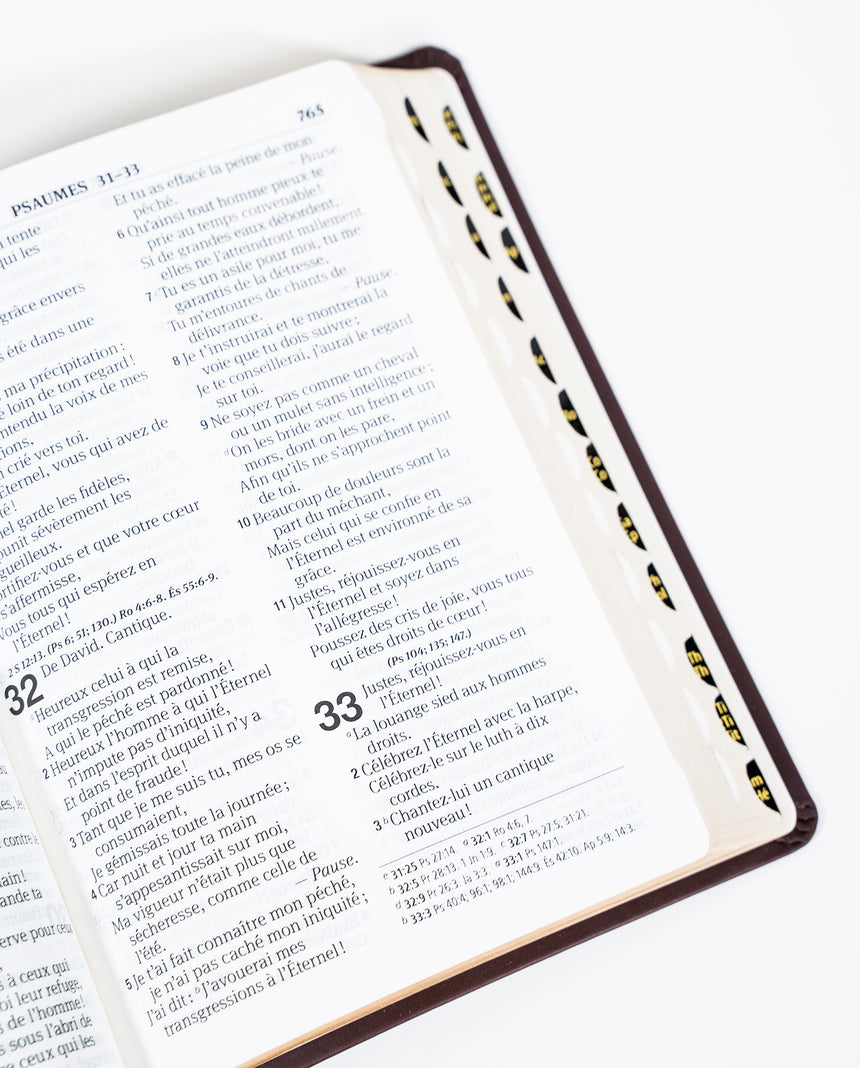 PSAUMES 31–33
765
tente
qui les
grâce envers
été dans une
ma précipitation :
loin de ton regard !
entendu la voix de mes
crié vers toi.
Éternel, vous qui avez de
garde les fidèles,
punit sévèrement les
et que votre cœur
s'affermisse,
Vous tous qui espérez en
l'Éternel !
2 S 12:13. (Ps 6; 51; 130.) Ro 4:6-8. És 55:6-9.
De David. Cantique.
32
ᵃHeureux celui à qui la
transgression est remise,
A qui le péché est pardonné !
2 Heureux l'homme à qui l'Éternel
n'impute pas d'iniquité,
Et dans l'esprit duquel il n'y a
point de fraude !
3 Tant que je me suis tu, mes os se
consumaient,
Je gémissais toute la journée ;
4 Car nuit et jour ta main
s'appesantissait sur moi,
Ma vigueur n'était plus que
sécheresse, comme celle de
l'été.
— Pause.
5 Je t'ai fait connaître mon péché,
je n'ai pas caché mon iniquité ;
J'ai dit : ᵇJ'avouerai mes
transgressions à l'Éternel !
Et tu as effacé la peine de mon
péché.
— Pause.
6 Qu'ainsi tout homme pieux te
prie au temps convenable !
Si de grandes eaux débordent,
elles ne l'atteindront nullement.
7 ᶜTu es un asile pour moi, tu me
garantis de la détresse,
Tu m'entoures de chants de
délivrance.
— Pause.
8 Je t'instruirai et te montrerai la
voie que tu dois suivre ;
Je te conseillerai, j'aurai le regard
sur toi.
9 Ne soyez pas comme un cheval
ou un mulet sans intelligence ;
On les bride avec un frein et un
mors, dont on les pare,
Afin qu'ils ne s'approchent point
de toi.
10 Beaucoup de douleurs sont la
part du méchant,
Mais celui qui se confie en
l'Éternel est environné de sa
grâce.
11 Justes, réjouissez-vous en
l'Éternel et soyez dans
l'allégresse !
Poussez des cris de joie, vous tous
qui êtes droits de cœur !
(Ps 104; 135; 147.)
33
Justes, réjouissez-vous en
l'Éternel !
ᵃLa louange sied aux hommes
droits.
2 Célébrez l'Éternel avec la harpe,
Célébrez-le sur le luth à dix
cordes.
3 ᵇChantez-lui un cantique
nouveau !
31:25 Ps 27:14. ᵃ 32:1 Ro 4:6, 7.
ᵇ 32:5 Pr 28:13. 1 Jn 1:9. ᶜ 32:7 Ps 27:5; 31:21.
ᵈ 32:9 Pr 26:3. Ja 3:3. ᵃ 33:1 Ps 147:1.
ᵇ 33:3 Ps 40:4; 96:1; 98:1; 144:9. És 42:10. Ap 5:9; 14:3.
à ceux qui
leur refuge,
de l'homme !
sous l'abri de
ceux qui les